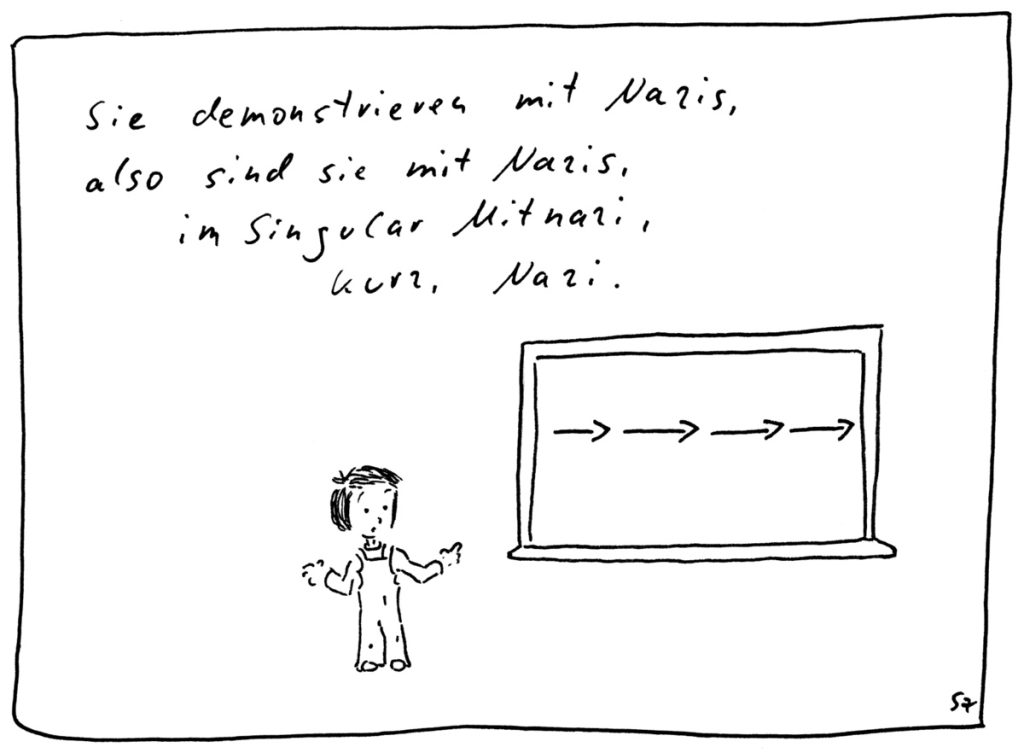 Sie demonstrieren mit Nazis,
also sind sie mit Nazis,
im Singular Mitnazi,
kurz, Nazi.